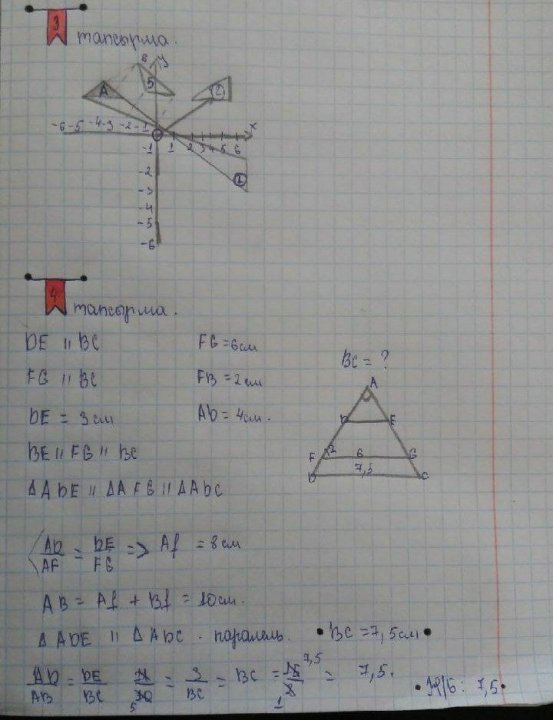 3
тапсырма.
B y
A 5 2
-6 -5 -4 -3 -2 -1 0 1 2 3 4 5 6 x
-1
-2
1
-3
-4
-5
-6
4
тапсырма.
DE || BC FG = 6см
FG || BC FB = 2см
DE = 3см AD = 4см.
BC = ?
A
D E
F 2 6 G
7,5
C
BE || FG || BC
ΔADE || ΔAFG || ΔADC
AD/AF = DE/FG => Af = 8см
AB = Af + Bf = 10см.
ΔADE || ΔADC. параллель. • BC = 7,5см •
AD/AB = DE/BC = 3/BC = BC = 15/2 = 7,5.
5 1 7,5
• Ж/б: 7,5 •